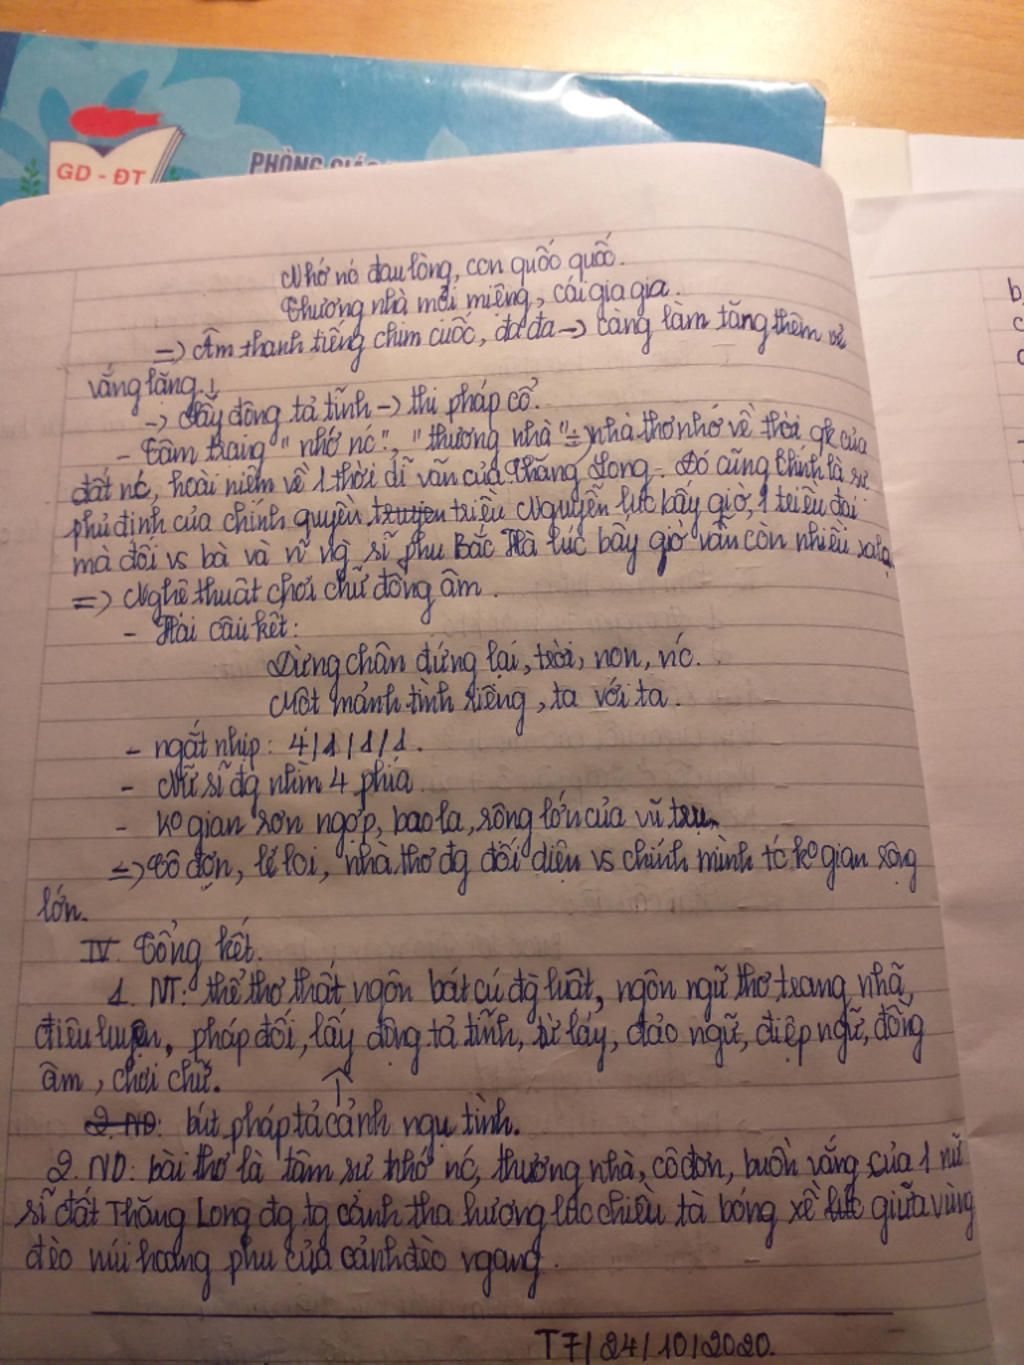 GD - ĐT
PHÒNG GIÁO
Nhớ nc đau lòng, con quốc quốc.
Thương nhà mỏi miệng, cái gia gia.
=> Âm thanh tiếng chim cuốc, đa đa -> càng làm tăng thêm vẻ
vắng lặng.
-> Lấy động tả tĩnh -> thi pháp cổ.
- Tâm trạng "nhớ nc", "thương nhà" => nhà thơ nhớ về thời qk của
đất nc, hoài niệm về 1 thời dĩ vãn của Thăng Long. Đó cũng chính là sự
phủ định của chính quyền triều Nguyễn lúc bấy giờ, 1 triều đại
mà đối vs bà và n~ ng` sĩ phu Bắc Hà lúc bấy giờ vẫn còn nhiều xa lạ
=> Nghệ thuật chơi chữ đồng âm.
- Hai câu kết:
Dừng chân đứng lại, trời, non, nc.
Một mảnh tình riêng, ta với ta.
- ngắt nhịp: 4/1/1/1.
- Nữ sĩ đg nhìn 4 phía
- ko gian rợn ngợp, bao la, rộng lớn của vũ trụ.
=> Cô đơn, lẻ loi, nhà thơ đg đối diện vs chính mình tc ko gian rộng
lớn.
IV. Tổng kết.
1. NT: thể thơ thất ngôn bát cú đg luật, ngôn ngữ thơ trang nhã,
điêu luyện, pháp đối, lấy động tả tĩnh, từ láy, đảo ngữ, điệp ngữ, đồng
âm, chơi chữ.
2. ND: bút pháp tả cảnh ngụ tình.
2. ND: bài thơ là tâm sự nhớ nc, thương nhà, cô đơn, buồn vắng của 1 nữ
sĩ đất Thăng Long đg tg cảnh tha hương lúc chiều tà bóng xế giữa vùng
đèo núi hoang phu của cảnh đèo ngang.
T7/24/10/2020.